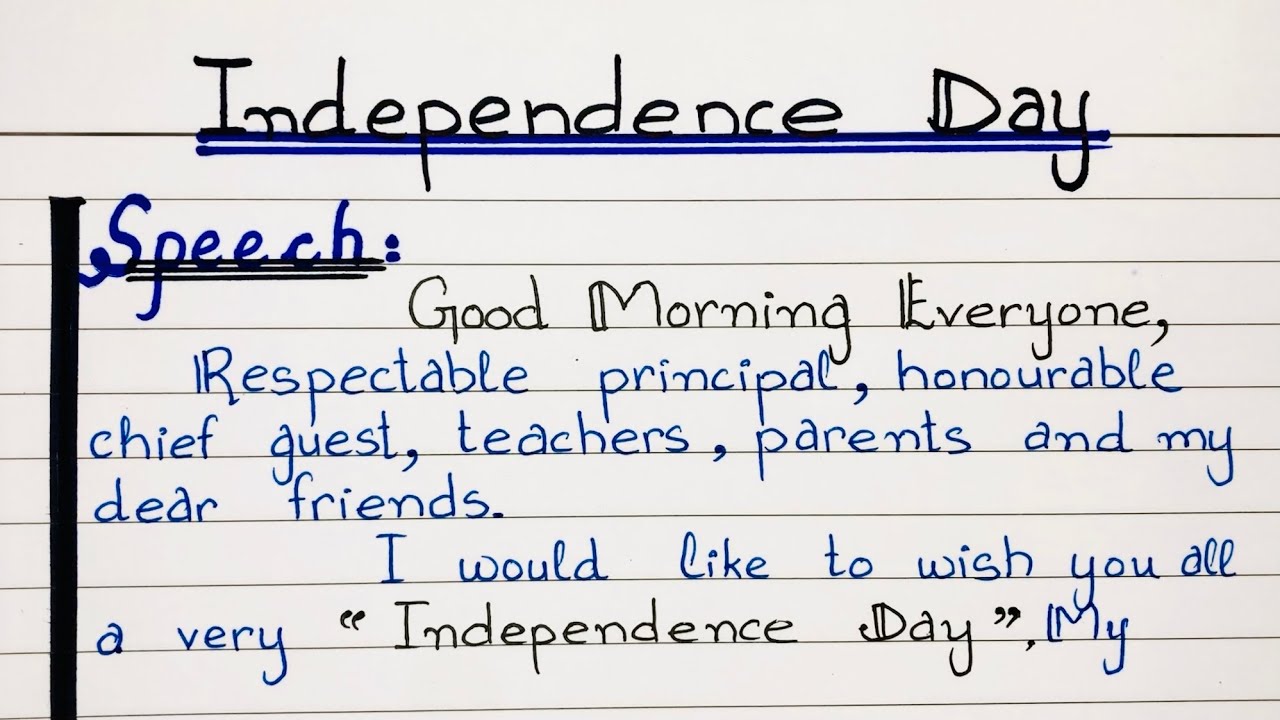 Independence Day
Speech:
Good Morning Everyone,
Respectable principal, honourable
chief guest, teachers, parents and my
dear friends.
I would like to wish you all
a very "Independence Day". My